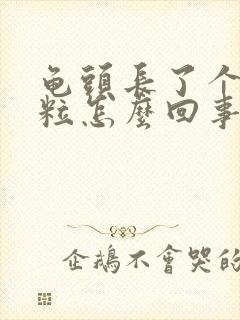 龟頭長了个
粒怎麼回事
企鵝不會哭的